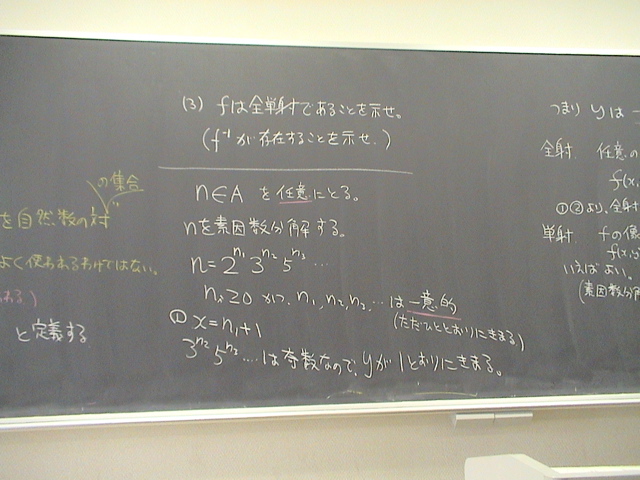 の集合
を自然数の対
よく使われるわけではない。
と定義する
(3) fは全単射であることを示せ。
(f⁻¹が存在することを示せ.)
n∈A を任意にとる。
nを素因数分解する。
n=2^{n₁} 3^{n₂} 5^{n₃} …
nᵢ≧0 かつ、n₁,n₂,n₃,…は一意的
(ただひととおりにきまる)
① x=n₁+1
3^{n₂} 5^{n₃}…は奇数なので、yが1とおりにきまる。
つまり yは
全射. 任意の
f(x,
①②より、全射
単射. fの像
f(x,y
いえばよい。
(素因数分解